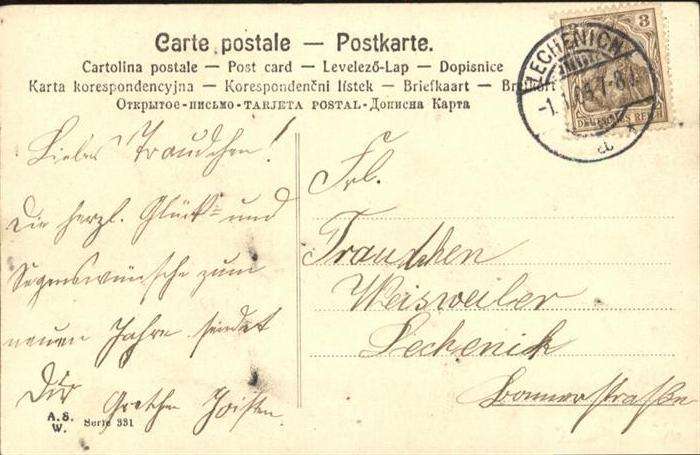 Carte postale — Postkarte.
Cartolina postale — Post card — Levelező-Lap — Dopisnice
Karta korespondencyjna — Korespondenční lístek — Briefkaart —
Открытое-письмо-TARJETA POSTAL-Дописна Карта
Liebes Traudchen!
Die herzl. Glück= und
Segenswünsche zum
neuen Jahre sendet
Dir Grethe
A.S.
W. Serie 331
Frl.
Traudchen
Weisweiler
Lechenich
Bonnerstraße
3
LECHENICH